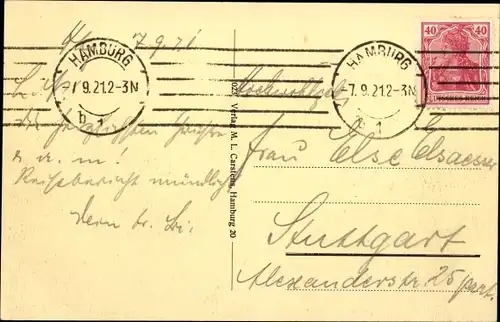 H 7.9.21
HAMBURG
7.9.21.2-3N
b 1
HAMBURG
-7.9.21.2-3N
b 1
40 40
DEUTSCHES REICH
herzlichsten Grüße
u. a. m!
Reisebericht mündlich
Dein tr.
Verlag M. L. Carstens, Hamburg 20
Frau Else Elsaesser
Stuttgart
Alexanderstr. 25 part.